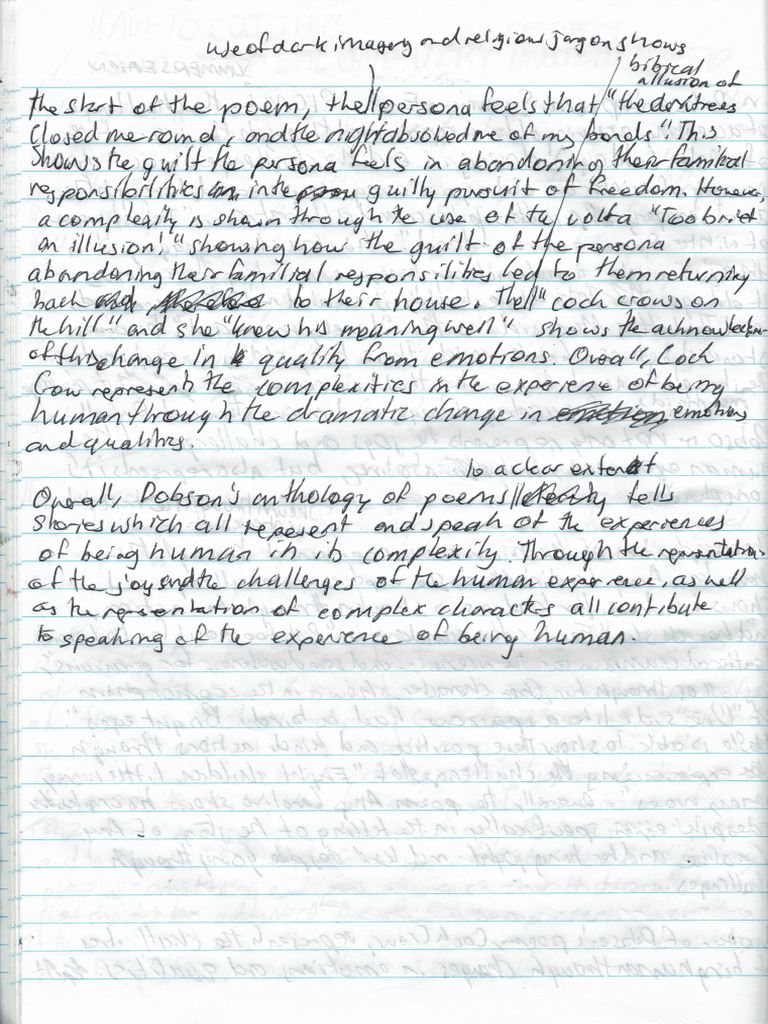 use of dark imagery and religious jargon shows
bibical
allusion of
the start of the poem, the persona feels that "the dark trees
Closed me round, and the night absolved me of my bonds". This
shows the guilt the persona feels in abandoning their familial
responsibilities in the guilty pursuit of freedom. However,
a complexity is shown through the use of the volta "Too brief
an illusion!" showing how the guilt of the persona
abandoning their familial responsilities led to them returning
back to their house. The "cock crows on
the hill" and she "knew his meaning well" shows the acknowledgement
of this change in quality from emotions. Overall, Cock
Crow represents the complexities in the experience of being
human through the dramatic change in emotions
and qualities.
to a clear extent
Overall, Dobson's anthology of poems tells
stories which all represent and speak of the experiences
of being human in its complexity. Through the representation
of the joys and the challenges of the human experience, as well
as the representation of complex characters all contribute
to speaking of the experience of being human.